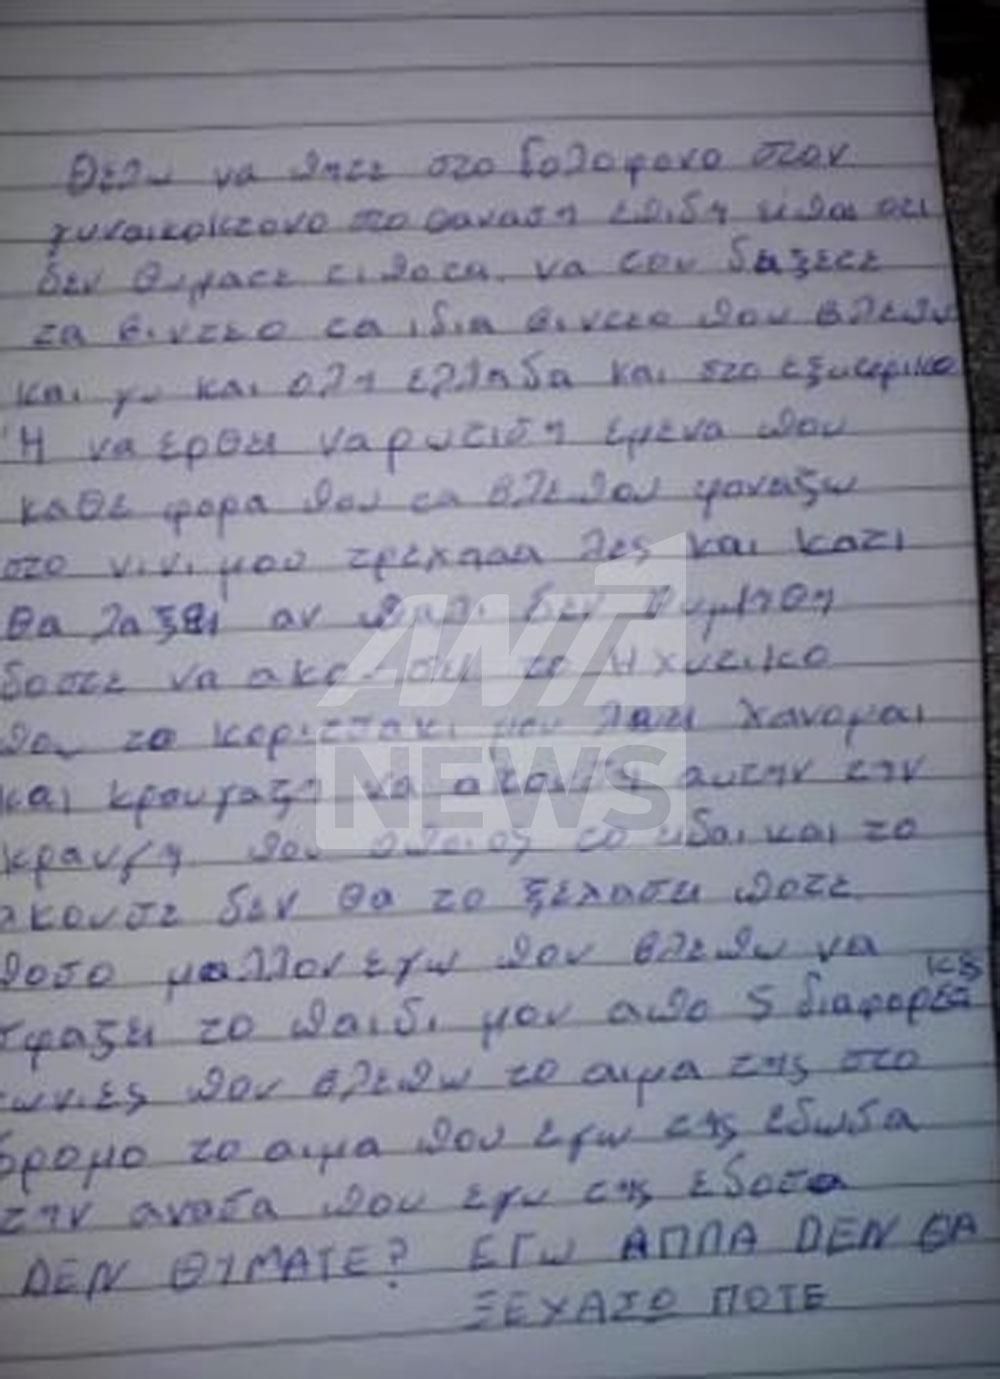 Θελω να πητε στο δολοφονο στον
γυναικοκτονο στο θαναση επιδη ειπαι οτι
δεν θιμαται τιποτα. να του δειξετε
τα βιντεο τα ιδια βιντεο που βλεπω
και γω και ολη ελλαδα και στο εξωτερικο
Η να ερθει να ρωτιση εμενα που
καθε φορα που τα βλεπου φοναζω
στο νινι μου τρεχααα λες και κατι
θα λαξει αν παλι δεν θυμηθη
δοστε να ακουσει το Ηχυτικο
που το κοριτσακι μου λεει χανομαι
και κραυγαζη να ακουση αυτην την
κραυγη που οποιος το ειδαι και το
ακουσε δεν θα το ξεχασει ποτε
ποσο μαλλον εγω που βλεπω να
σφαζει το παιδι μου απο 5 διαφορετικες
γωνιες που βλεπω το αιμα της στο
δρομο το αιμα που εγω της εδωσα
την ανασα που εγω της εδοσα
DEN ΘΥΜΑΤΕ? ΕΓω ΑΠΠΑ DEN ΘΑ
ΞΕΧΑΣΩ ΠΟΤΕ
ANT1
NEWS